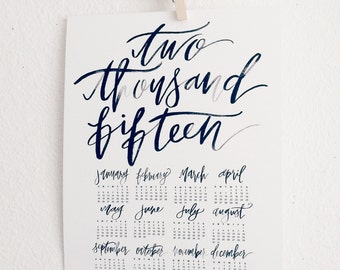 two
thousand
fifteen
january february march april
may june july august
september october november december